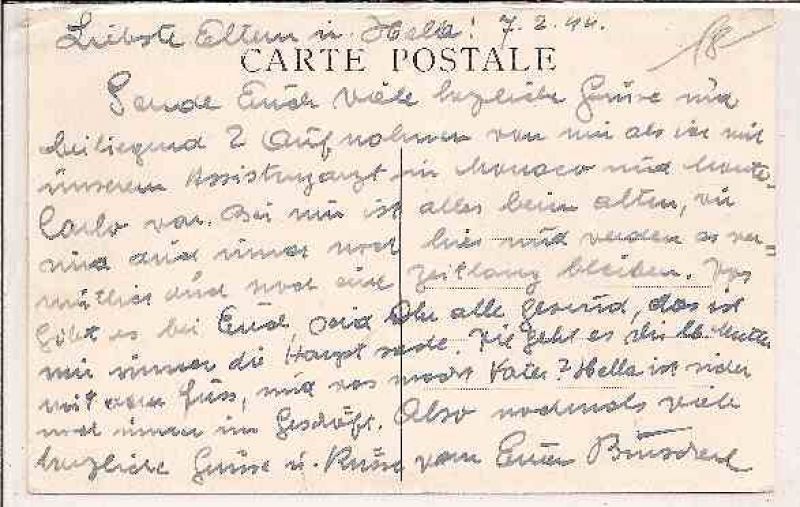 Liebste Eltern u. Hella! 7.2.44.
18
CARTE POSTALE
Sende Euch viele herzliche Grüsse und
beiliegend 2 Aufnahmen von mir als ich mit
unserem Assistenzarzt in Monaco und Monte-
Carlo war. Bei mir ist alles beim alten, wir
sind auch immer noch hier und werden es ver=
mutlich auch noch eine zeitlang bleiben. Was
gibt es bei Euch, seid Ihr alle gesund, das ist
mir immer die Hauptsache. Wie geht es Dir lb. Mutter
mit dem Fuss, und was macht Vater? Hella ist sicher
noch immer im Geschäft. Also nochmals viele
herzliche Grüsse u. Küsse von Euren